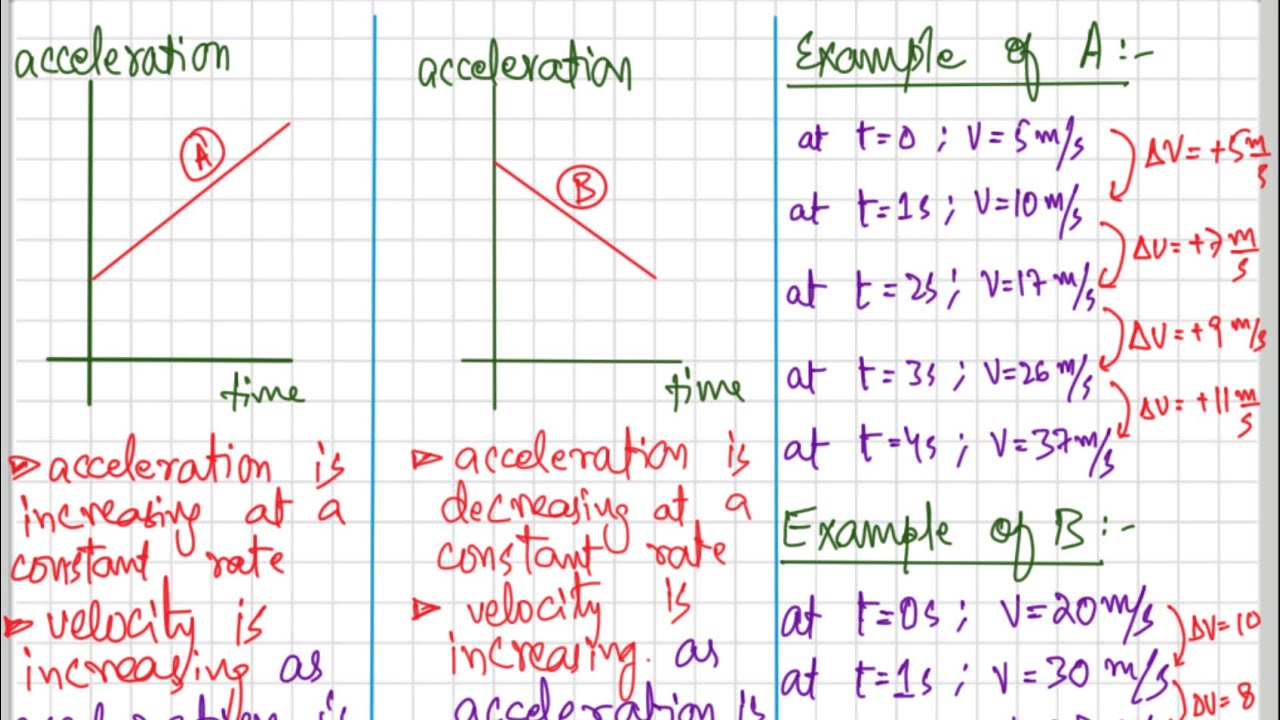 acceleration
A
time
▻ acceleration is
increasing at a
constant rate
▻ velocity is
increasing as
acceleration is
acceleration
B
time
▻ acceleration is
decreasing at a
constant rate
▻ velocity is
increasing. as
acceleration is
Example of A:-
at t=0 ; V=5m/s
ΔV=+5m/s
at t=1s ; V=10m/s
ΔV=+7m/s
at t=2s ; V=17m/s
ΔV=+9m/s
at t=3s ; V=26m/s
ΔV=+11m/s
at t=4s ; V=37m/s
Example of B:-
at t=0s ; V=20m/s
ΔV=10
at t=1s ; V=30m/s
ΔV=8